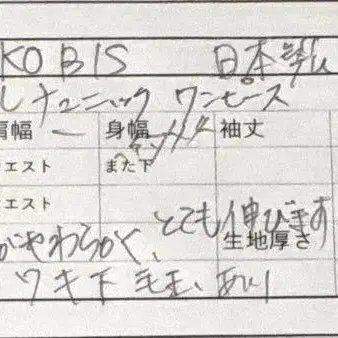 KOBIS 日本製
ルチュニック ワンピース
肩幅 ー 身幅 袖丈
エスト また下
エスト
がやわらかく、とても伸びます
生地厚さ
ワキ下毛玉、あり